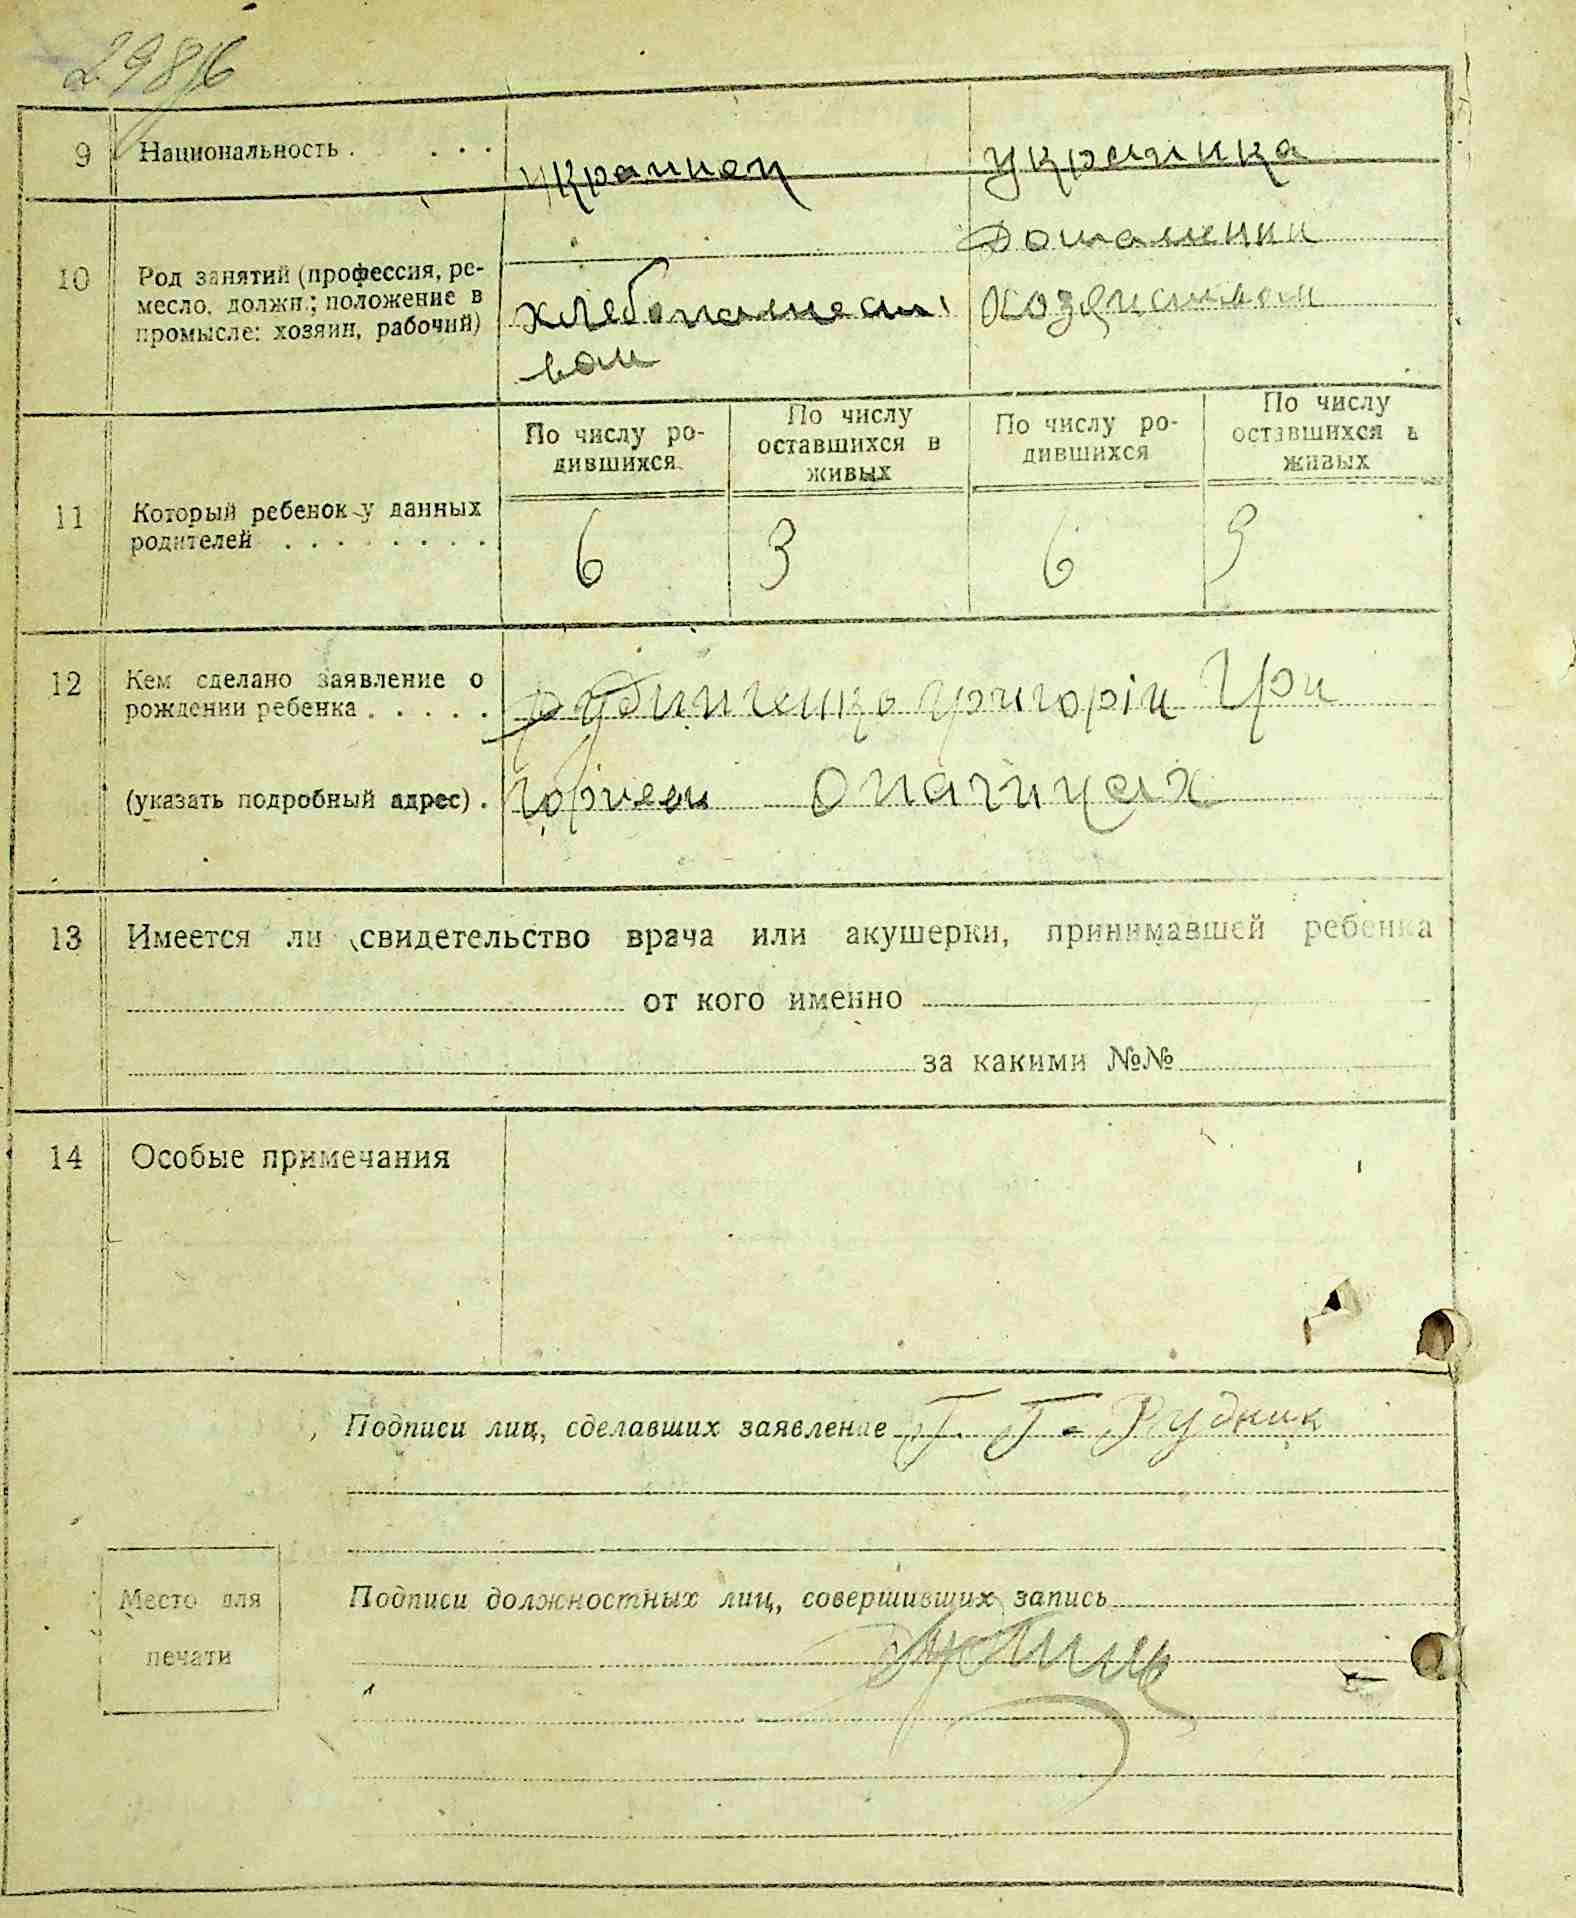 298/6
9 Национальность . . . . украинец украинка
10 Род занятий (профессия, ре-
месло, должн.; положение в
промысле: хозяин, рабочий)
хлебопашест
вом
Домашним
хозяиством
По числу ро-
дившихся
По числу
оставшихся в
живых
По числу ро-
дившихся
По числу
оставшихся в
живых
11 Который ребенок у данных
родителей . . . . . . . .
6 3 6 3
12 Кем сделано заявление о
рождении ребенка . . . . . Григорій Гри
(указать подробный адрес) .
13 Имеется ли свидетельство врача или акушерки, принимавшей ребенка
от кого именно
за какими №№
14 Особые примечания
Подписи лиц, сделавших заявление Г. Г. Рудник
Место для
печати
Подписи должностных лиц, совершивших запись